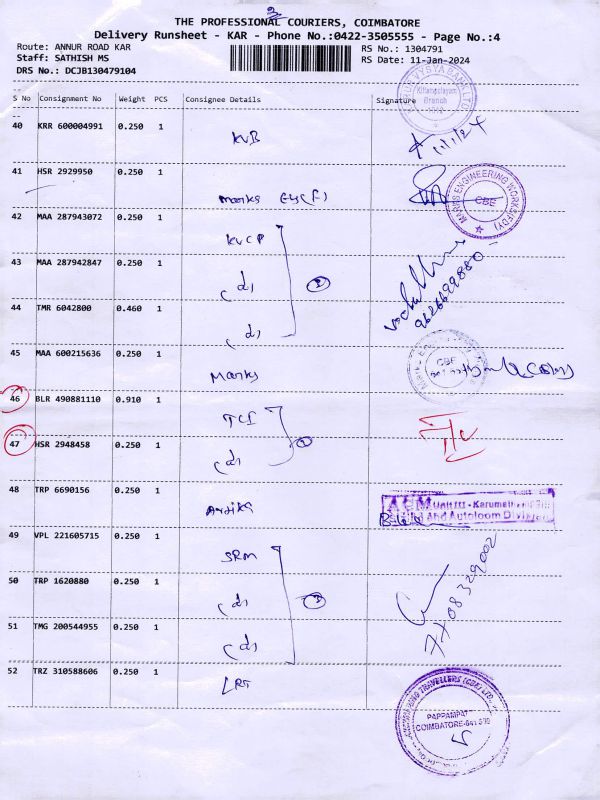 THE PROFESSIONAL COURIERS, COIMBATORE
Delivery Runsheet - KAR - Phone No.:0422-3505555 - Page No.:4
Route: ANNUR ROAD KAR
RS No.: 1304791
Staff: SATHISH MS
RS Date: 11-Jan-2024
DRS No.: DCJB130479104
S No Consignment No Weight PCS Consignee Details Signature
Branch
40 KRR 600004991 0.250 1 KVB
41 HSR 2929950 0.250 1 marks
MARKS ENGINEERING WORKS (FDY)
CBE
42 MAA 287943072 0.250 1 KVCP
43 MAA 287942847 0.250 1 (do)
44 TMR 6042800 0.460 1 (do)
9626699880
45 MAA 600215636 0.250 1 Marks
CBE
46 BLR 490881110 0.910 1 TCI
47 HSR 2948458 0.250 1 (do)
48 TRP 6690156 0.250 1
And Autoloom
49 VPL 221605715 0.250 1 SRM
50 TRP 1620880 0.250 1 (do)
51 TMG 200544955 0.250 1 (do)
52 TRZ 310588606 0.250 1 LRT
TRAVELLERS (CBE)
PAPPAMPATTI
COIMBATORE